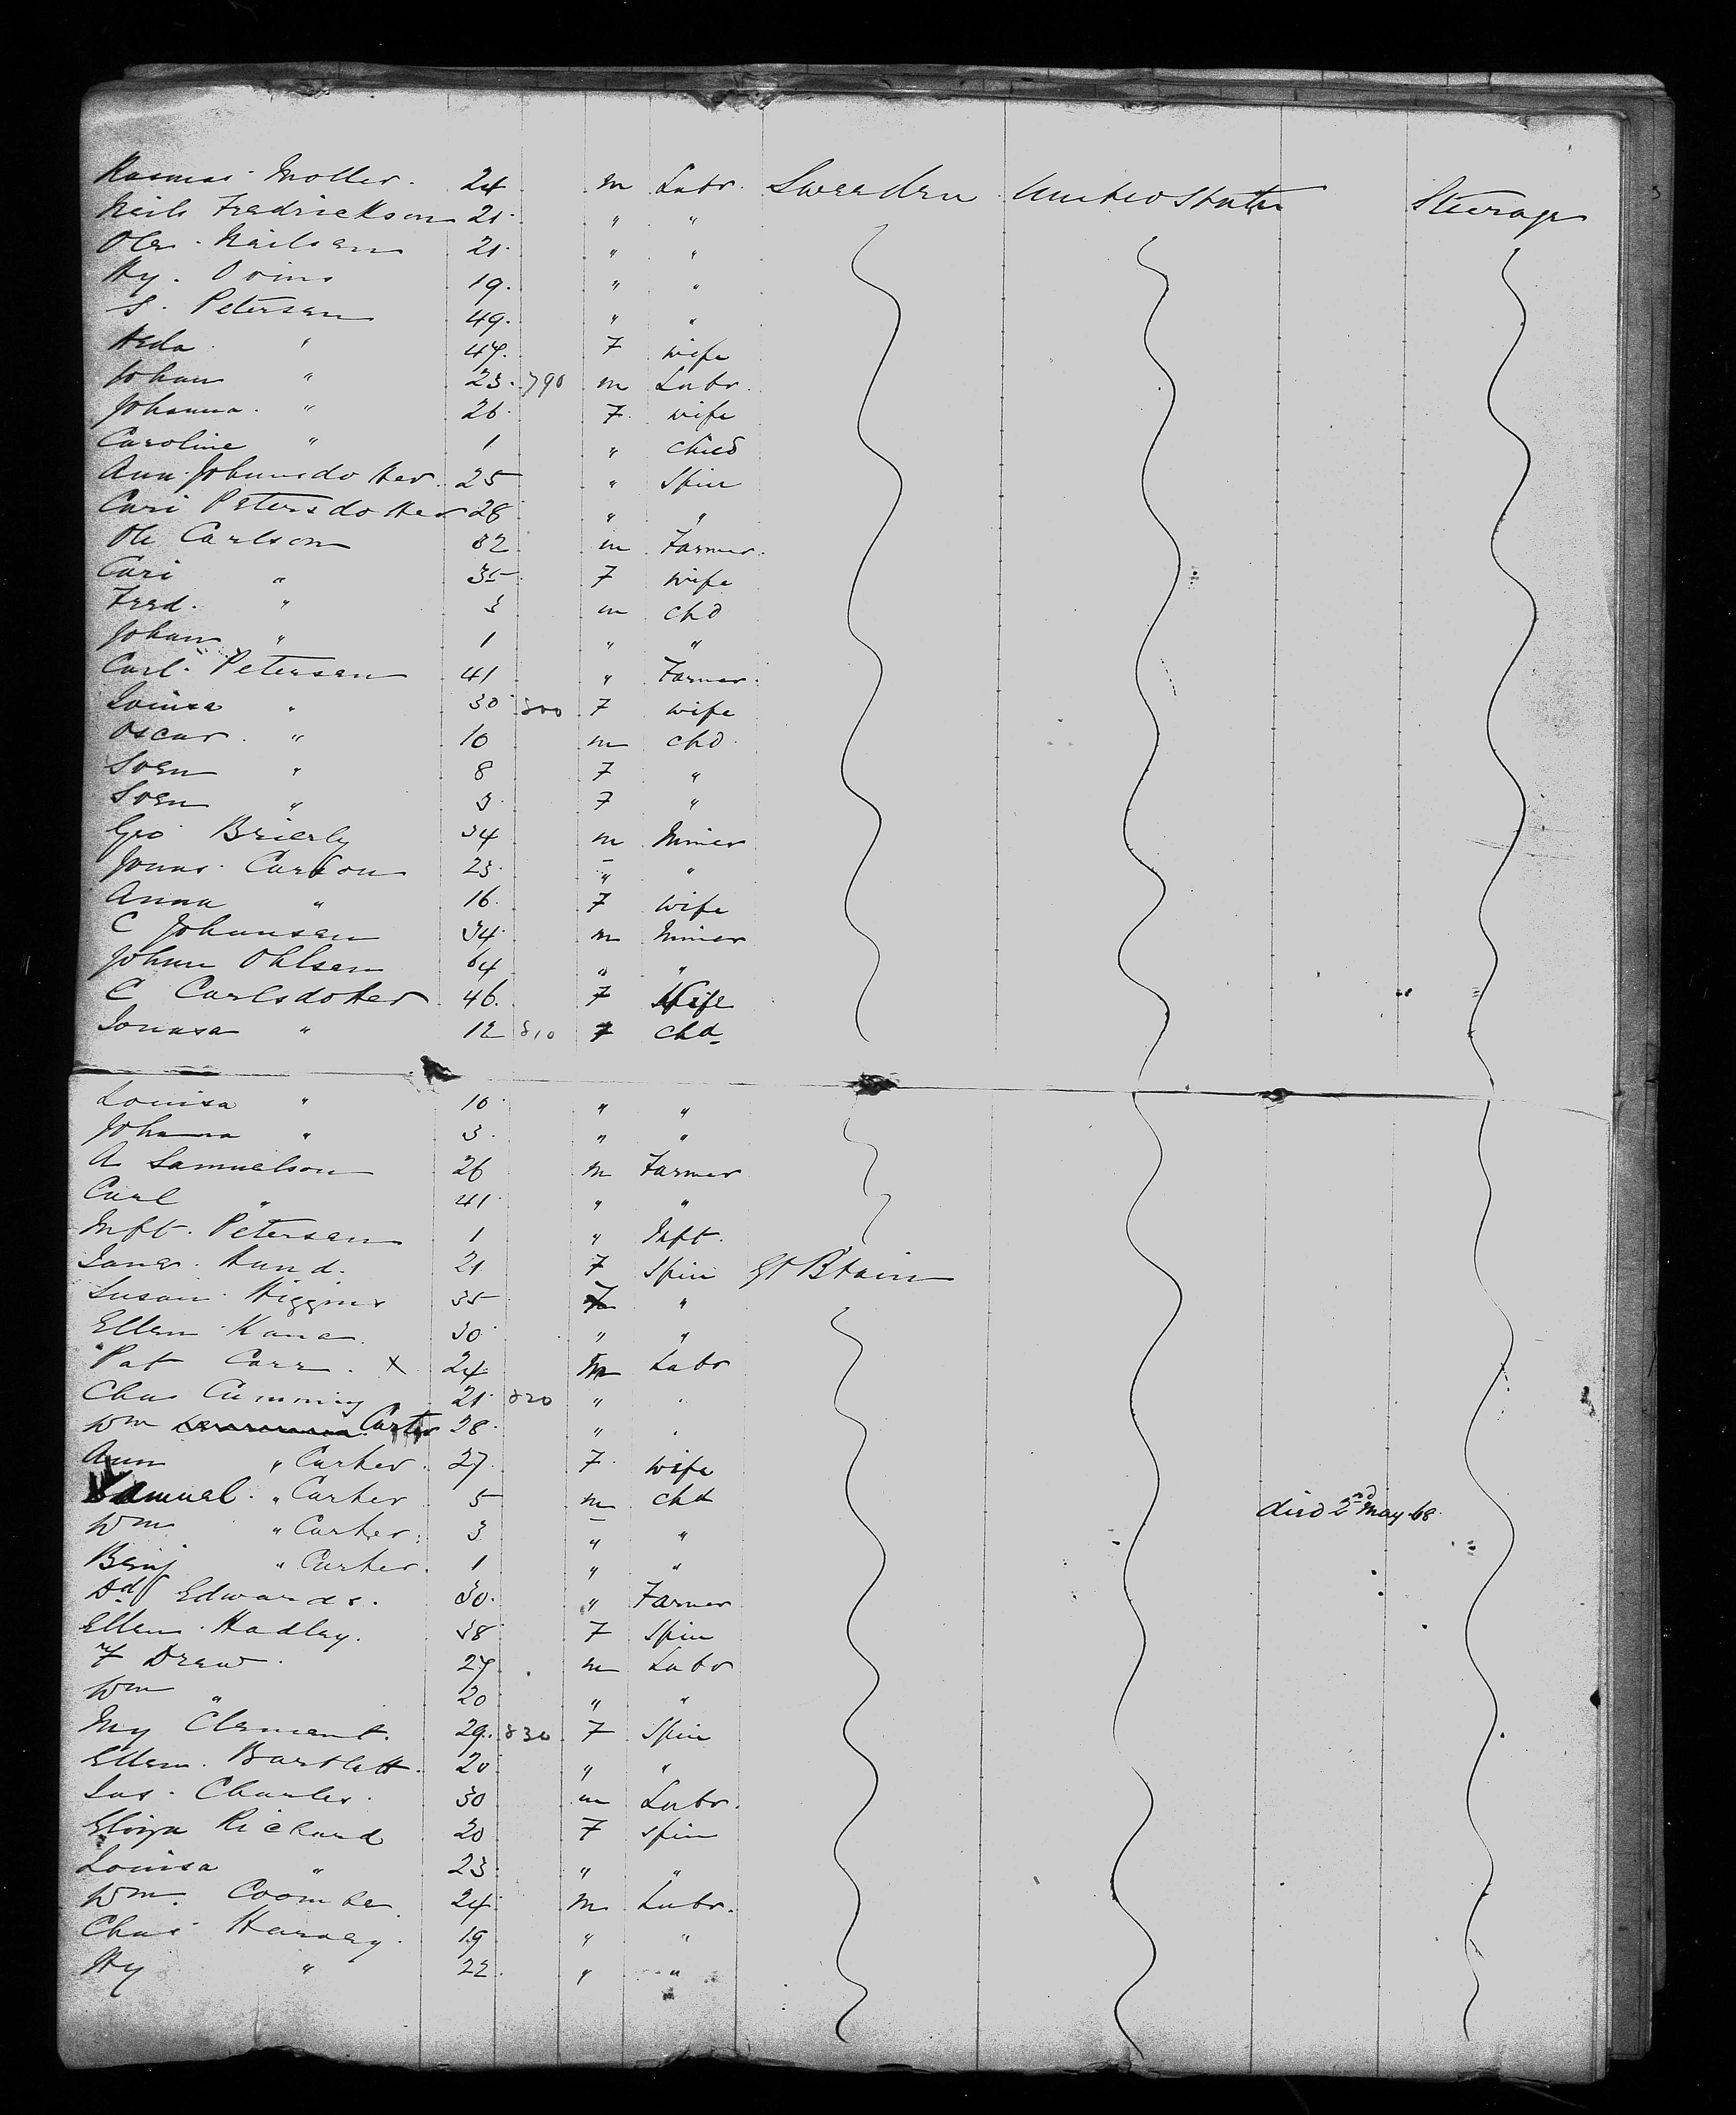 Rasmus Moller. 24 m Labr. Sweeden United States Steerage
Neils Fredrickson 21 " "
Ole Neilsen 21 " "
Hy. 19 " "
S. Petersen 49 " "
Heda " 47 F wife
Johan " 23 790 m Labr.
Johanna " 26 F wife
Caroline " 1 " Child
Ann Johansdotter 25 " Spin
Cari Petersdotter 28 " "
Ole Carlson 32 m Farmer
Cari " 35 F wife
Fred. " 3 m chd
Johan " 1 " "
Carl. Petersen 41 " Farmer
Louisa " 30 800 F wife
Oscar " 10 m chd
Sven " 8 F "
Sven " 3 F "
Geo Brierly 34 m Miner
Jonas Carlson 23 " "
Anna " 16 F wife
C Johansen 34 m Miner
Johan Ohlsen 64 " "
C Carlsdotter 46 F Wife
" 12 810 F Chd
Louisa " 10 " "
Johanna " 3 " "
A Samuelson 26 m Farmer
Carl " 41 " "
Inft. Petersen 1 " Inft.
Hand. 21 F Spin Gt Btain
Susan Higgins 35 F "
Ellen Kane 30 " "
Pat Carr X 24 m Labr
Chas Cumming 21 820 " "
Wm Carter 28 " "
Ann " Carter 27 F wife
Samuel " Carter 5 m chd died 2nd May 68
Wm " Carter 3 " "
Benj " Carter 1 " "
Dd Edwards 30 " Farmer
Ellen Hadley. 38 F Spin
F Drew 27 m Labr
Wm " 20 " "
My Clement. 29 830 F Spin
Ellen. Bartlett 20 " "
Jas. Charles 30 m Labr.
Eliza Rickard 20 F spin
Louisa " 23 " "
Wm. Coombe 24 m Labr.
Chas Harvey 19 " "
Hy " 22 " "